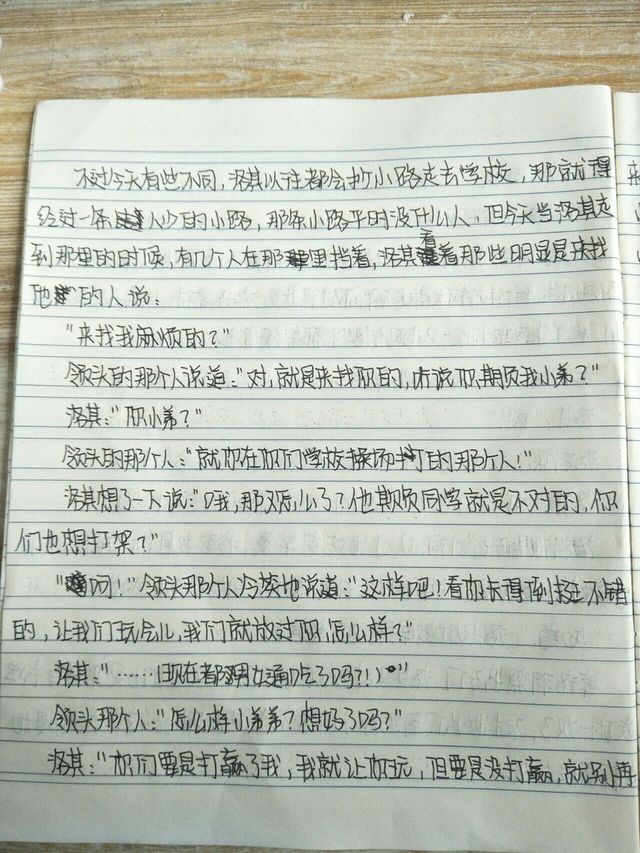 不过今天有些不同，洛其以往都会抄小路走去学校，那就得
经过一条人少的小路，那条小路平时没什么人，但今天当洛其走
到那里的时候，有几个人在那里挡着，洛其看着那些明显是来找
他的人说：
"来找我麻烦的？"
领头的那个人说道："对，就是来找你的，听说你期负我小弟？"
洛其："你小弟？"
领头的那个人："就你在你们学校操场打的那个人！"
洛其想了一下说："哦，那又怎么了？他期负同学就是不对的，你
们也想打架？"
"呵！"领头那个人冷笑地说道："这样吧！看你长得倒挺不错
的，让我们玩会儿，我们就放过你，怎么样？"
洛其："……（现在都男女通吃了吗？！）。"
领头那个人："怎么样小弟弟？想好了吗？"
洛其："你们要是打赢了我，我就让你玩，但要是没打赢，就别再
来